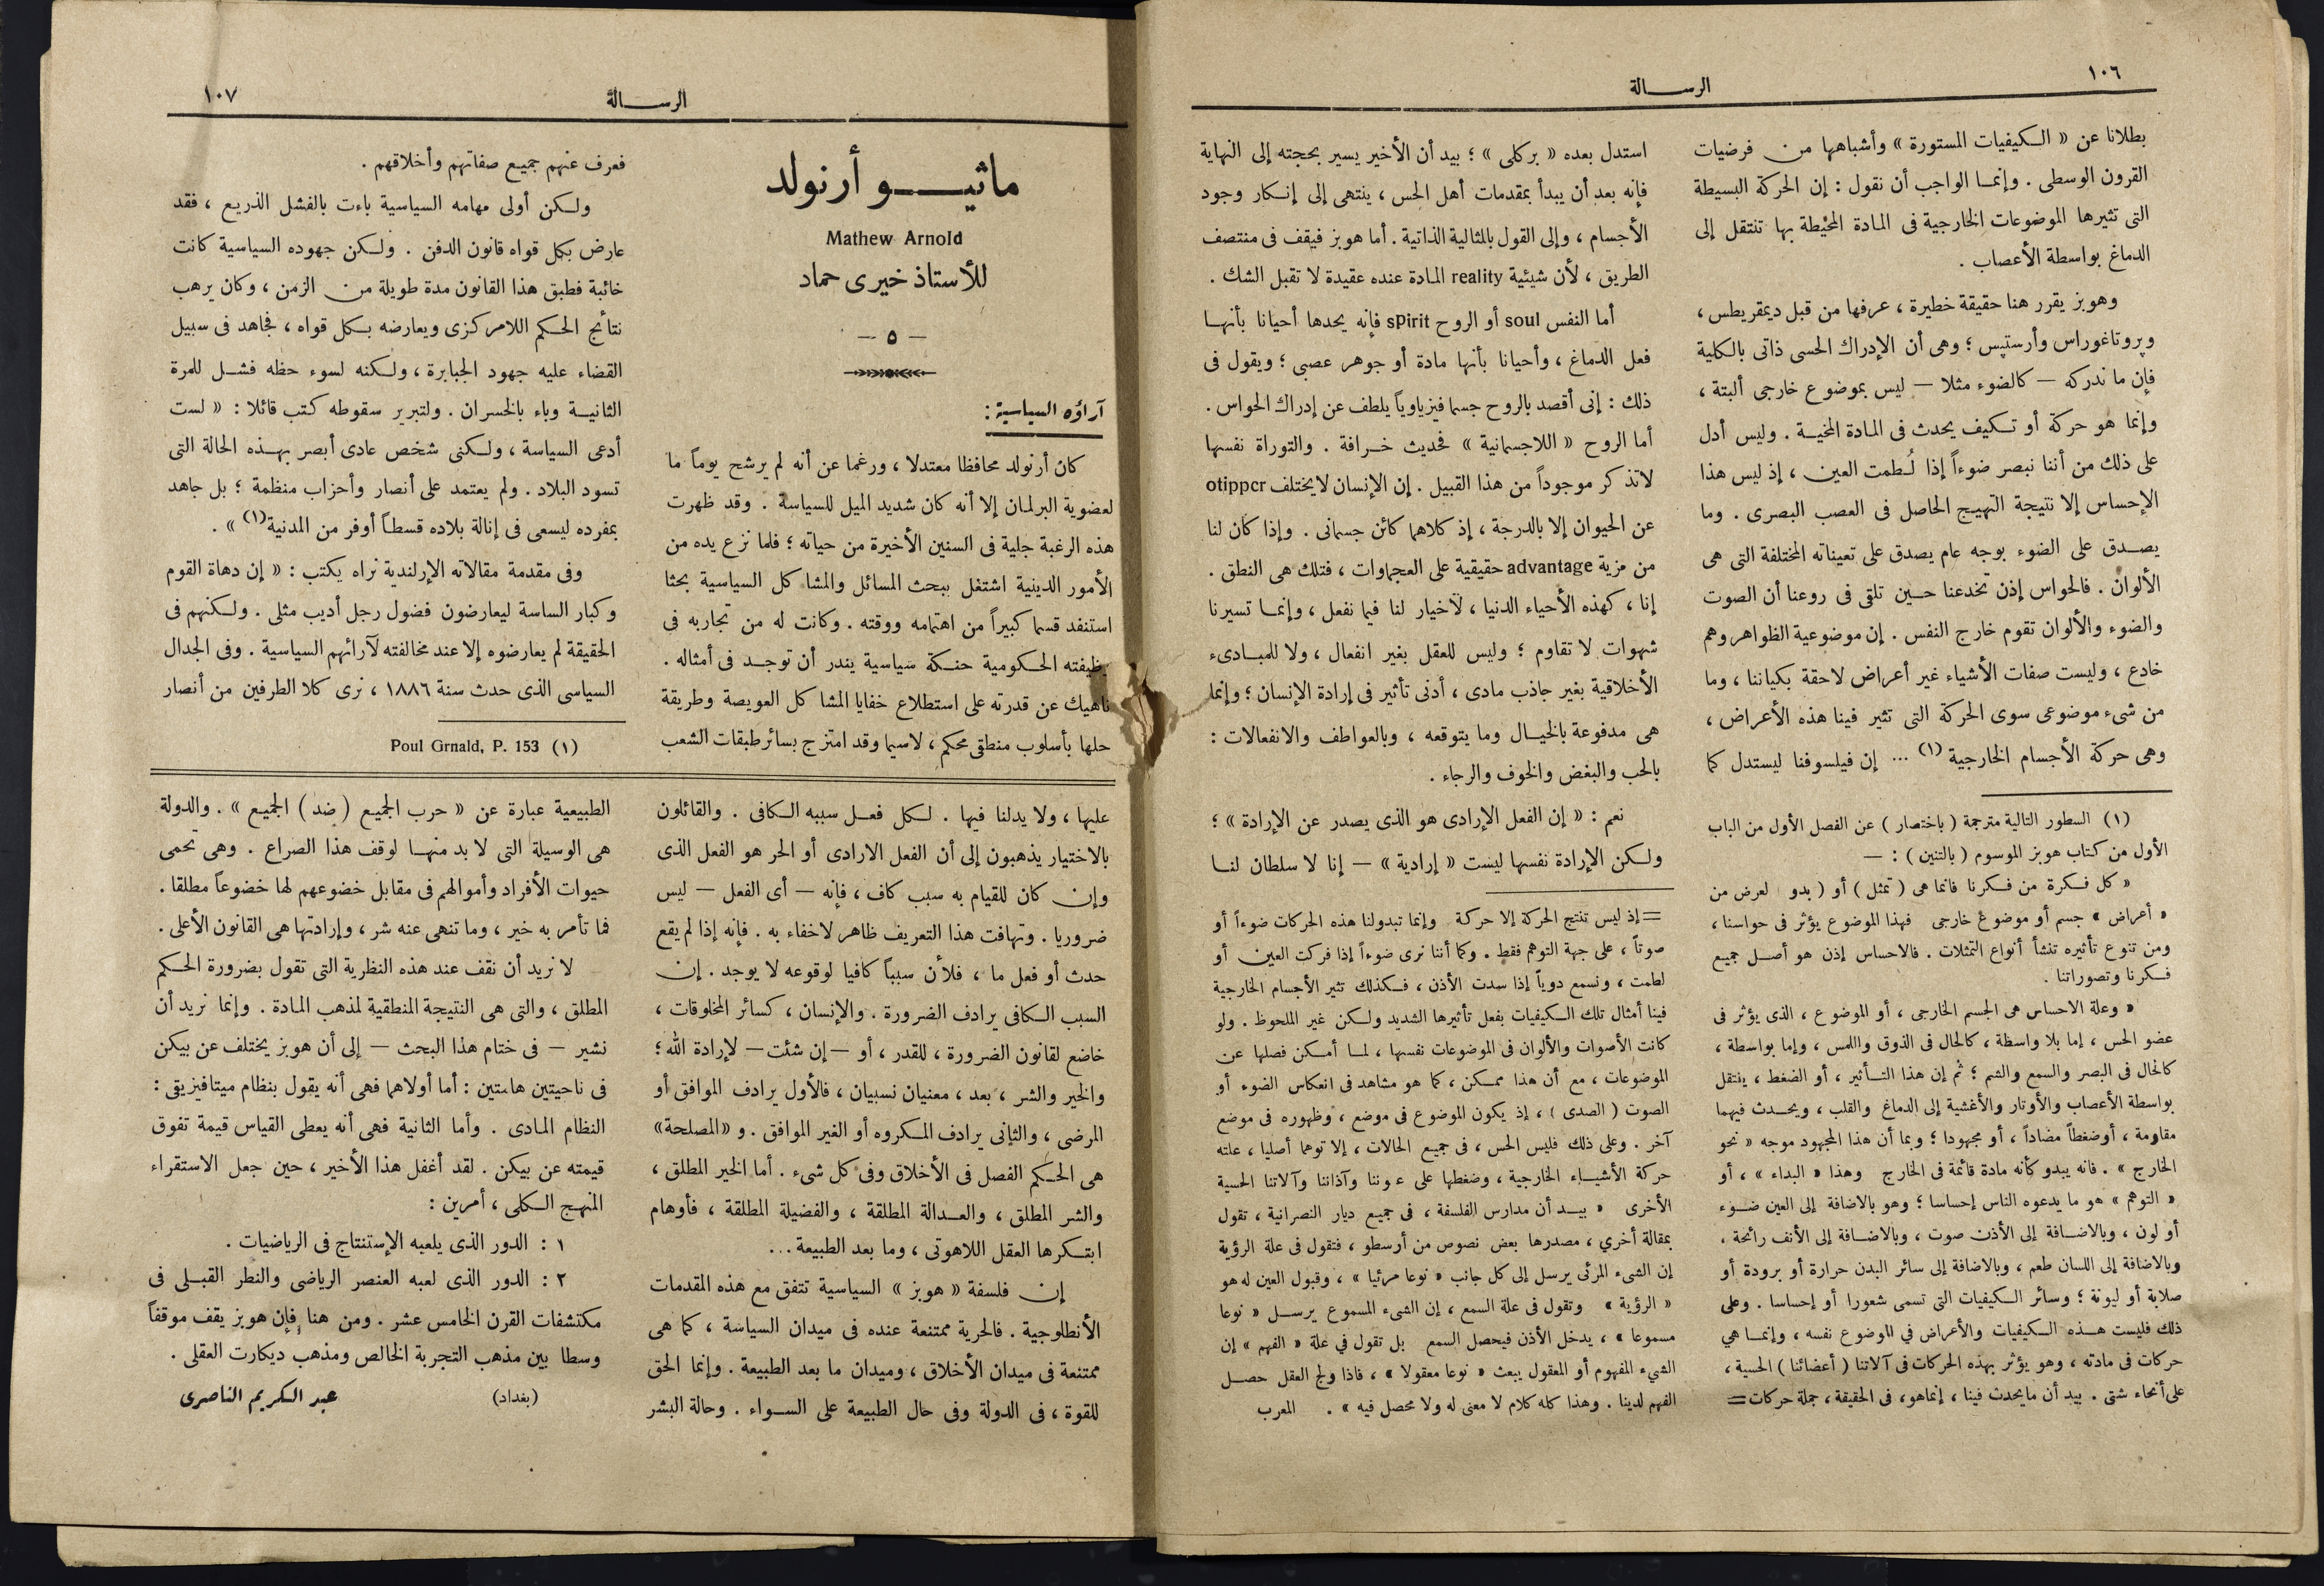 ١٠٦
الرســـالة
بطلانا عن « الكيفيات المستورة » وأشباهها من فرضيات
القرون الوسطى . وإنما الواجب أن نقول : إن الحركة البسيطة
التى تثيرها الموضوعات الخارجية فى المادة المحيطة بها تنتقل إلى
الدماغ بواسطة الأعصاب .
وهوبز يقرر هنا حقيقة خطيرة ، عرفها من قبل ديمقريطس ،
وپروتاغوراس وأرستپس ؛ وهى أن الإدراك الحسى ذاتى بالكلية
فإن ما ندركه — كالضوء مثلا — ليس بموضوع خارجى ألبتة ،
وإنما هو حركة أو تكيف يحدث فى المادة المخية . وليس أدل
على ذلك من أننا نبصر ضوءاً إذا لُطمت العين ، إذ ليس هذا
الإحساس إلا نتيجة التهيج الحاصل فى العصب البصرى . وما
يصدق على الضوء بوجه عام يصدق على تعيناته المختلفة التى هى
الألوان . فالحواس إذن تخدعنا حين تلقى فى روعنا أن الصوت
والضوء والألوان تقوم خارج النفس . إن موضوعية الظواهر وهم
خادع ، وليست صفات الأشياء غير أعراض لاحقة بكياننا ، وما
من شىء موضوعى سوى الحركة التى تثير فينا هذه الأعراض ،
وهى حركة الأجسام الخارجية (١) ... إن فيلسوفنا ليستدل كما
(١) السطور التالية مترجمة ( باختصار ) عن الفصل الأول من الباب
الأول من كتاب هوبز الموسوم ( بالتنين ) : —
« كل فكرة من فكرنا فانما هى ( تمثل ) أو ( بدو لعرض من
« أعراض » جسم أو موضوع خارجى فهذا الموضوع يؤثر فى حواسنا ،
ومن تنوع تأثيره تنشأ أنواع التمثلات . فالاحساس إذن هو أصل جميع
فكرنا وتصوراتنا .
« وعلة الاحساس هى الجسم الخارجى ، أو الموضوع ، الذى يؤثر فى
عضو الحس ، إما بلا واسطة ، كالحال فى الذوق واللمس ، وإما بواسطة ،
كالحال فى البصر والسمع والشم ؛ ثم إن هذا التأثير ، أو الضغط ، ينتقل
بواسطة الأعصاب والأوتار والأغشية إلى الدماغ والقلب ، ويحدث فيهما
مقاومة ، أو ضغطاً مضاداً ، أو مجهودا ؛ وبما أن هذا المجهود موجه « نحو
الخارج » . فانه يبدو كأنه مادة قائمة فى الخارج وهذا « البداء » ، أو
« التوهم » هو ما يدعوه الناس إحساسا ؛ وهو بالاضافة إلى العين ضوء
أو لون ، وبالاضافة إلى الأذن صوت ، وبالاضافة إلى الأنف رائحة ،
وبالاضافة إلى اللسان طعم ، وبالاضافة إلى سائر البدن حرارة أو برودة أو
صلابة أو ليونة ؛ وسائر الكيفيات التى تسمى شعورا أو إحساسا . وعلى
ذلك فليست هذه الكيفيات والأعراض في الموضوع نفسه ، وإنما هي
حركات فى مادته ، وهو يؤثر بهذه الحركات فى آلاتنا ( أعضائنا ) الحسية ،
على أنحاء شتى . بيد أن ما يحدث فينا ، إنما هو ، فى الحقيقة ، جملة حركات =
استدل بعده « بركلى » ؛ بيد أن الأخير يسير بحجته إلى النهاية
فإنه بعد أن يبدأ بمقدمات أهل الحس ، ينتهى إلى إنكار وجود
الأجسام ، وإلى القول بالمثالية الذاتية . أما هوبز فيقف فى منتصف
الطريق ، لأن شيئية reality المادة عنده عقيدة لا تقبل الشك .
أما النفس soul أو الروح spirit فإنه يحدها أحيانا بأنها
فعل الدماغ ، وأحيانا بأنها مادة أو جوهر عصبى ؛ ويقول فى
ذلك : إنى أقصد بالروح جسما فيزياوياً يلطف عن إدراك الحواس .
أما الروح « اللاجسمانية » فحديث خرافة . والتوراة نفسها
لاتذكر موجوداً من هذا القبيل . إن الإنسان لايختلف otippcr
عن الحيوان إلا بالدرجة ، إذ كلاهما كائن جسمانى . وإذا كان لنا
من مزية advantage حقيقية على العجماوات ، فتلك هى النطق .
إنا ، كهذه الأحياء الدنيا ، لاخيار لنا فيما نفعل ، وإنما تسيرنا
شهوات لا تقاوم ؛ وليس للعقل بغير انفعال ، ولا للمبادىء
الأخلاقية بغير جاذب مادى ، أدنى تأثير فى إرادة الإنسان ؛ وإنما
هى مدفوعة بالخيال وما يتوقعه ، وبالعواطف والانفعالات :
بالحب والبغض والخوف والرجاء .
نعم : « إن الفعل الإرادى هو الذى يصدر عن الإرادة » ؛
ولكن الإرادة نفسها ليست « إرادية » — إنا لا سلطان لنا
= إذ ليس تنتج الحركة إلا حركة وإنما تبدولنا هذه الحركات ضوءاً أو
صوتاً ، على جهة التوهم فقط . وكما أننا نرى ضوءاً إذا فركت العين أو
لطمت ، ونسمع دوياً إذا سدت الأذن ، فكذلك تثير الأجسام الخارجية
فينا أمثال تلك الكيفيات بفعل تأثيرها الشديد ولكن غير الملحوظ . ولو
كانت الأصوات والألوان فى الموضوعات نفسها ، لما أمكن فصلها عن
الموضوعات ، مع أن هذا ممكن ، كما هو مشاهد فى انعكاس الضوء أو
الصوت ( الصدى ) ، إذ يكون الموضوع فى موضع ، وظهوره فى موضع
آخر . وعلى ذلك فليس الحس ، فى جميع الحالات ، إلا توهما أصليا ، علته
حركة الأشياء الخارجية ، وضغطها على عيوننا وآذاننا وآلاتنا الحسية
الأخرى « بيد أن مدارس الفلسفة ، فى جميع ديار النصرانية ، تقول
بمقالة أخري ، مصدرها بعض نصوص من أرسطو ، فتقول فى علة الرؤية
إن الشىء المرئى يرسل إلى كل جانب « نوعا مرئيا » ، وقبول العين له هو
« الرؤية » وتقول فى علة السمع ، إن الشىء المسموع يرسل « نوعا
مسموعا » ، يدخل الأذن فيحصل السمع بل تقول في علة « الفهم » إن
الشيء المفهوم أو المعقول يبعث « نوعا معقولا » ، فاذا ولج العقل حصل
الفهم لدينا . وهذا كله كلام لا معنى له ولا محصل فيه » . المعرب
١٠٧
الرســـالة
ماثيـــو أرنولد
Mathew Arnold
للأستاذ خيرى حماد
— ٥ —
آراؤه السياسية :
كان أرنولد محافظا معتدلا ، ورغما عن أنه لم يرشح يوماً ما
لعضوية البرلمان إلا أنه كان شديد الميل للسياسة . وقد ظهرت
هذه الرغبة جلية فى السنين الأخيرة من حياته ؛ فلما نزع يده من
الأمور الدينية اشتغل ببحث المسائل والمشاكل السياسية بحثا
استنفد قسما كبيراً من اهتمامه ووقته . وكانت له من تجاربه فى
وظيفته الحكومية حنكة سياسية يندر أن توجد فى أمثاله .
ناهيك عن قدرته على استطلاع خفايا المشاكل العويصة وطريقة
حلها بأسلوب منطقى محكم ، لاسيما وقد امتزج بسائر طبقات الشعب
فعرف عنهم جميع صفاتهم وأخلاقهم .
ولكن أولى مهامه السياسية باءت بالفشل الذريع ، فقد
عارض بكل قواه قانون الدفن . ولكن جهوده السياسية كانت
خائبة فطبق هذا القانون مدة طويلة من الزمن ، وكان يرهب
نتائج الحكم اللامركزى ويعارضه بكل قواه ، فجاهد فى سبيل
القضاء عليه جهود الجبابرة ، ولكنه لسوء حظه فشل للمرة
الثانية وباء بالخسران . ولتبرير سقوطه كتب قائلا : « لست
أدعى السياسة ، ولكنى شخص عادى أبصر بهذه الحالة التى
تسود البلاد . ولم يعتمد على أنصار وأحزاب منظمة ؛ بل جاهد
بمفرده ليسعى فى إنالة بلاده قسطاً أوفر من المدنية (١) » .
وفى مقدمة مقالاته الإرلندية نراه يكتب : « إن دهاة القوم
وكبار الساسة ليعارضون فضول رجل أديب مثلى . ولكنهم فى
الحقيقة لم يعارضوه إلا عند مخالفته لآرائهم السياسية . وفى الجدال
السياسى الذى حدث سنة ١٨٨٦ ، نرى كلا الطرفين من أنصار
(١) Poul Grnald, P. 153
عليها ، ولا يدلنا فيها . لكل فعل سببه الكافى . والقائلون
بالاختيار يذهبون إلى أن الفعل الارادى أو الحر هو الفعل الذى
وإن كان للقيام به سبب كاف ، فإنه — أى الفعل — ليس
ضروريا . وتهافت هذا التعريف ظاهر لاخفاء به . فإنه إذا لم يقع
حدث أو فعل ما ، فلأن سبباً كافيا لوقوعه لا يوجد . إن
السبب الكافى يرادف الضرورة . والإنسان ، كسائر المخلوقات ،
خاضع لقانون الضرورة ، للقدر ، أو — إن شئت — لإرادة الله ؛
والخير والشر ، بعد ، معنيان نسبيان ، فالأول يرادف الموافق أو
المرضى ، والثانى يرادف المكروه أو الغير الموافق . و « المصلحة »
هى الحكم الفصل فى الأخلاق وفى كل شىء . أما الخير المطلق ،
والشر المطلق ، والعدالة المطلقة ، والفضيلة المطلقة ، فأوهام
ابتكرها العقل اللاهوتى ، وما بعد الطبيعة ...
إن فلسفة « هوبز » السياسية تتفق مع هذه المقدمات
الأنطلوجية . فالحرية ممتنعة عنده فى ميدان السياسة ، كما هى
ممتنعة فى ميدان الأخلاق ، وميدان ما بعد الطبيعة . وإنما الحق
للقوة ، فى الدولة وفى حال الطبيعة على السواء . وحالة البشر
الطبيعية عبارة عن « حرب الجميع ( ضد ) الجميع » . والدولة
هى الوسيلة التى لا بد منها لوقف هذا الصراع . وهى تحمى
حيوات الأفراد وأموالهم فى مقابل خضوعهم لها خضوعاً مطلقا .
فما تأمر به خير ، وما تنهى عنه شر ، وإرادتها هى القانون الأعلى .
لا نريد أن نقف عند هذه النظرية التى تقول بضرورة الحكم
المطلق ، والتى هى النتيجة المنطقية لمذهب المادة . وإنما نريد أن
نشير — فى ختام هذا البحث — إلى أن هوبز يختلف عن بيكن
فى ناحيتين هامتين : أما أولاهما فهى أنه يقول بنظام ميتافيزيقى :
النظام المادى . وأما الثانية فهى أنه يعطى القياس قيمة تفوق
قيمته عن بيكن . لقد أغفل هذا الأخير ، حين جعل الاستقراء
المنهج الكلى ، أمرين :
١ : الدور الذى يلعبه الإستنتاج فى الرياضيات .
٢ : الدور الذى لعبه العنصر الرياضى والنطر القبلى فى
مكتشفات القرن الخامس عشر . ومن هنا فإن هوبز يقف موقفاً
وسطا بين مذهب التجربة الخالص ومذهب ديكارت العقلى .
(بغداد) عبد الكريم الناصرى